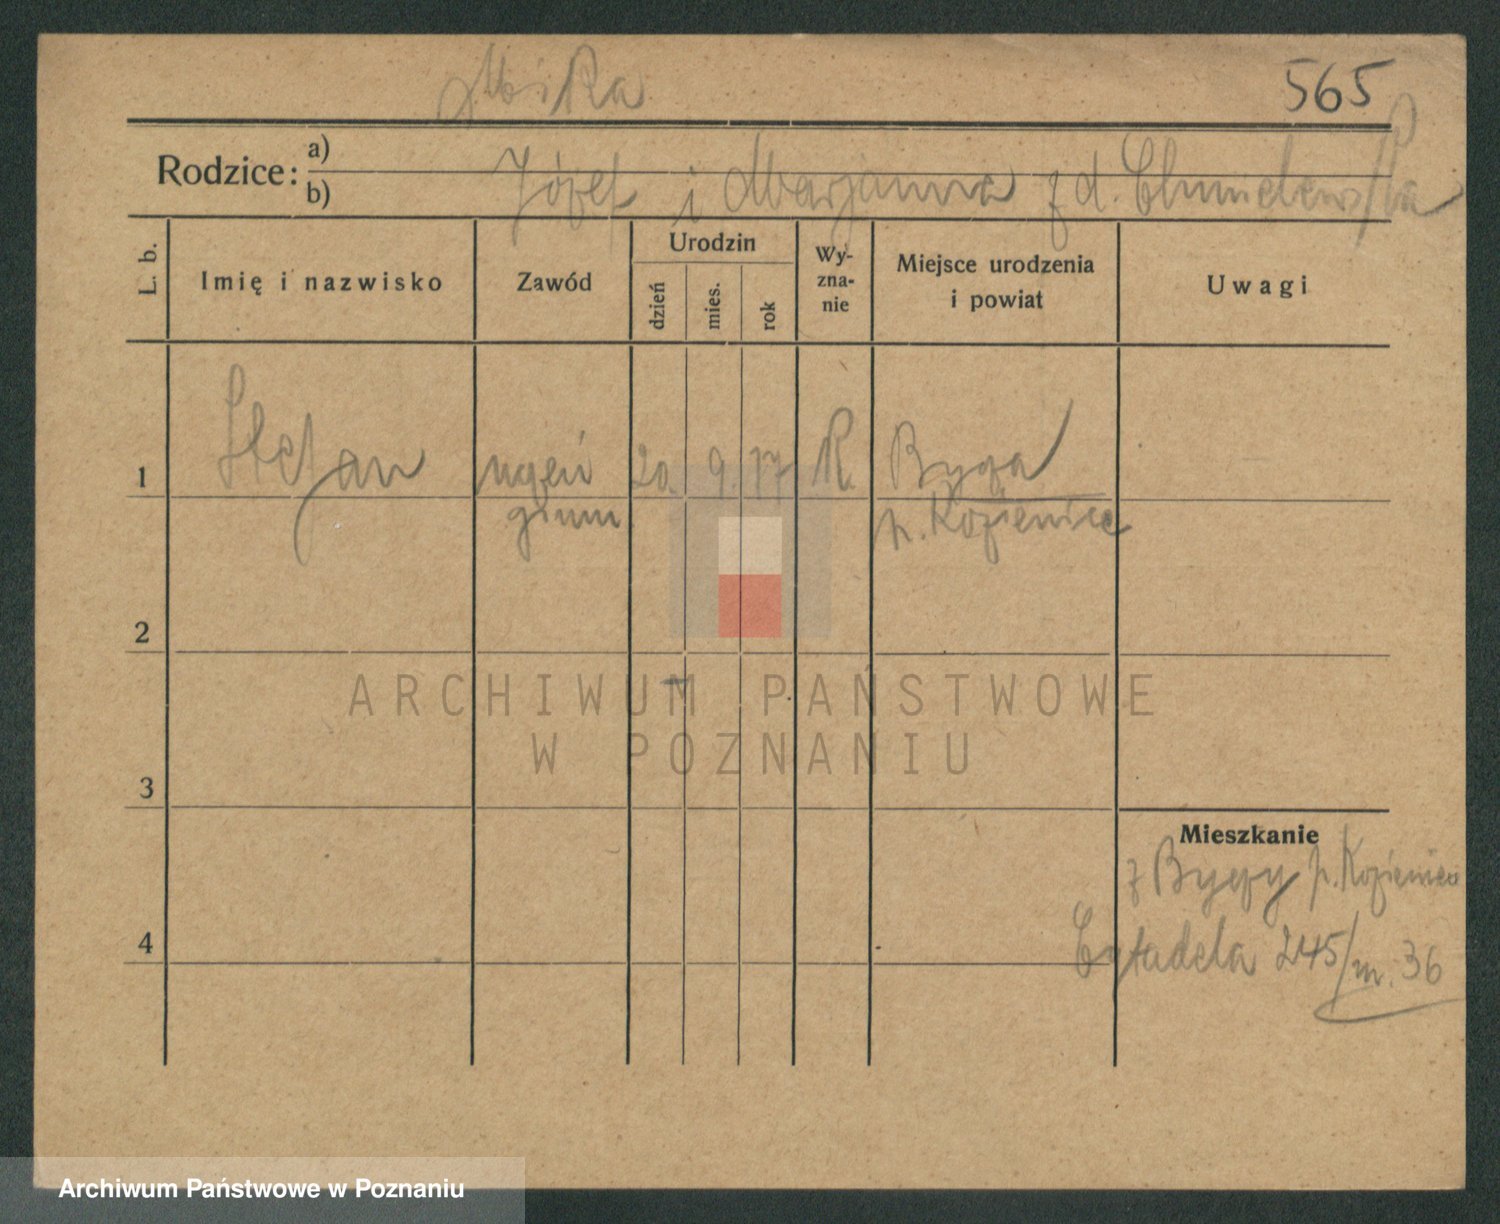 Mika
565
Rodzice: a)
b)
Józef i Marjanna z d. Chmielewska
L. b.
Imię i nazwisko
Zawód
Urodzin
dzień
mies.
rok
Wy-
zna-
nie
Miejsce urodzenia
i powiat
Uwagi
1
Stefan
uczeń
gimn
20. 9. 17
R.
Bryza
p. Kozienice
2
3
4
Mieszkanie
z p. Kozienice
Cytadela 245/m. 36
ARCHIWUM PAŃSTWOWE
W POZNANIU
Archiwum Państwowe w Poznaniu